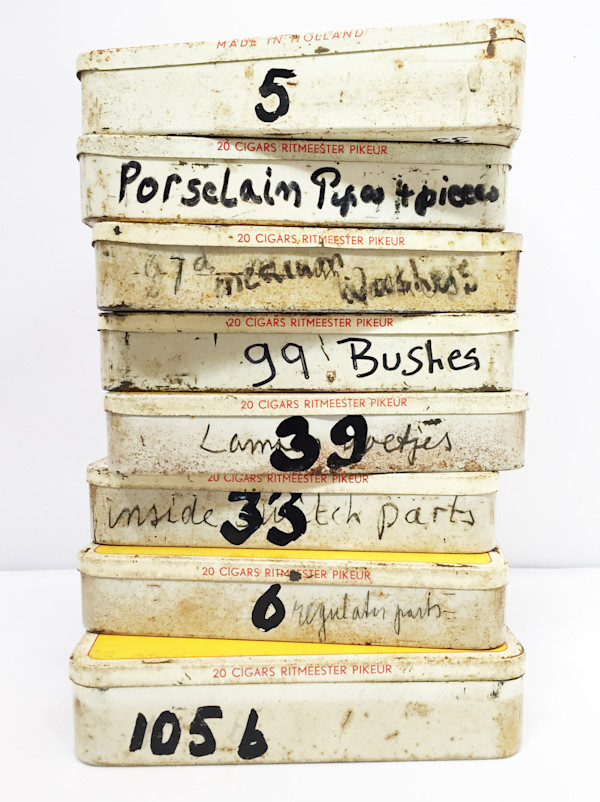 MADE IN HOLLAND
5
33
20 CIGARS RITMEESTER PIKEUR
PorseLain Pipes 4 pieces
20 CIGARS RITMEESTER PIKEUR
97a medium Washers
20 CIGARS RITMEESTER PIKEUR
99 Bushes
20 CIGARS RITMEESTER PIKEUR
39
20 CIGARS RITMEESTER PIKEUR
inside parts
33
20 CIGARS RITMEESTER PIKEUR
6 regulator parts
20 CIGARS RITMEESTER PIKEUR
105 b